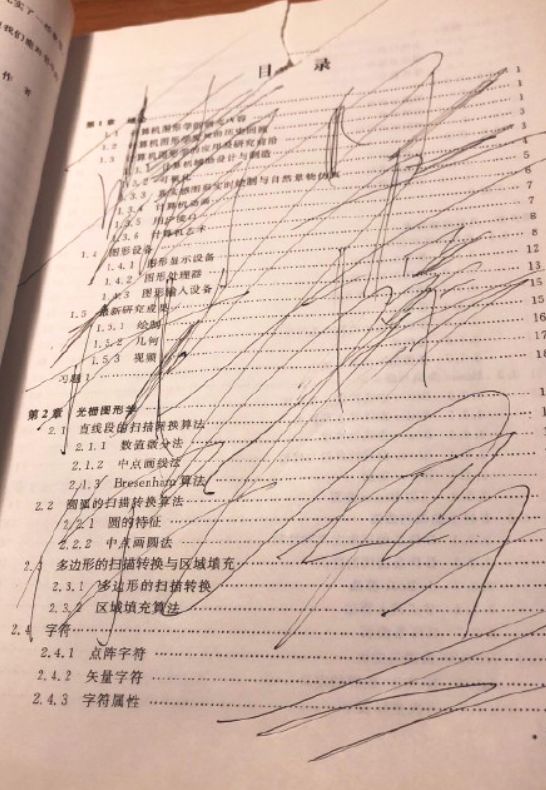 作 者
目 录
第1章 绪论 1
1.1 计算机图形学的研究内容 1
1.2 计算机图形学发展的历史回顾 1
1.3 计算机图形学的应用及研究前沿 3
1.3.1 计算机辅助设计与制造 3
1.3.2 可视化 4
1.3.3 真实感图形实时绘制与自然景物仿真 5
1.3.4 计算机动画 6
1.3.5 用户接口 7
1.3.6 计算机艺术 7
1.4 图形设备 8
1.4.1 图形显示设备 8
1.4.2 图形处理器 12
1.4.3 图形输入设备 13
1.5 最新研究成果 15
1.5.1 绘制 15
1.5.2 几何 16
1.5.3 视频 17
习题1 18
第2章 光栅图形学
2.1 直线段的扫描转换算法
2.1.1 数值微分法
2.1.2 中点画线法
2.1.3 Bresenham算法
2.2 圆弧的扫描转换算法
2.2.1 圆的特征
2.2.2 中点画圆法
2.3 多边形的扫描转换与区域填充
2.3.1 多边形的扫描转换
2.3.2 区域填充算法
2.4 字符
2.4.1 点阵字符
2.4.2 矢量字符
2.4.3 字符属性